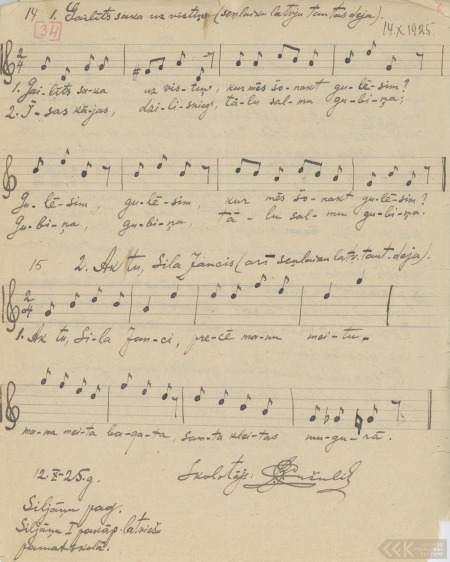 14 1. Gailīts saka uz vistiņu (senlaiku latvju tautas deja).
34
14.X 1925.
2 4
1. Gai-līts sa-ka uz vis-tiņ', kur mēs šo-nakt gu-lē-sim?
2. Ī-sas kā-jas, dzi-li sniegi, tā-lu sal-mu gu-bi-ņa;
Gu-lē-sim, gu-lē-sim, kur mēs šo-nakt gu-lē-sim?
Gu-bi-ņa, gu-bi-ņa, tā-lu sal-mu gu-bi-ņa.
15 2. Ak tu, Sila Jancis (arī senlaiku latv. taut. deja).
2 4
1. Ak tu, Si-la Jan-ci, pre-cē ma-nu mei-tu.
ma-na mei-ta ba-ga-ta, san-ta klei-tas mu-gu-rā.
12.X-25.g. Skolotājs:
Siljāņu pag.
Siljāņu I pakāp. latviešu
pamatskolā.